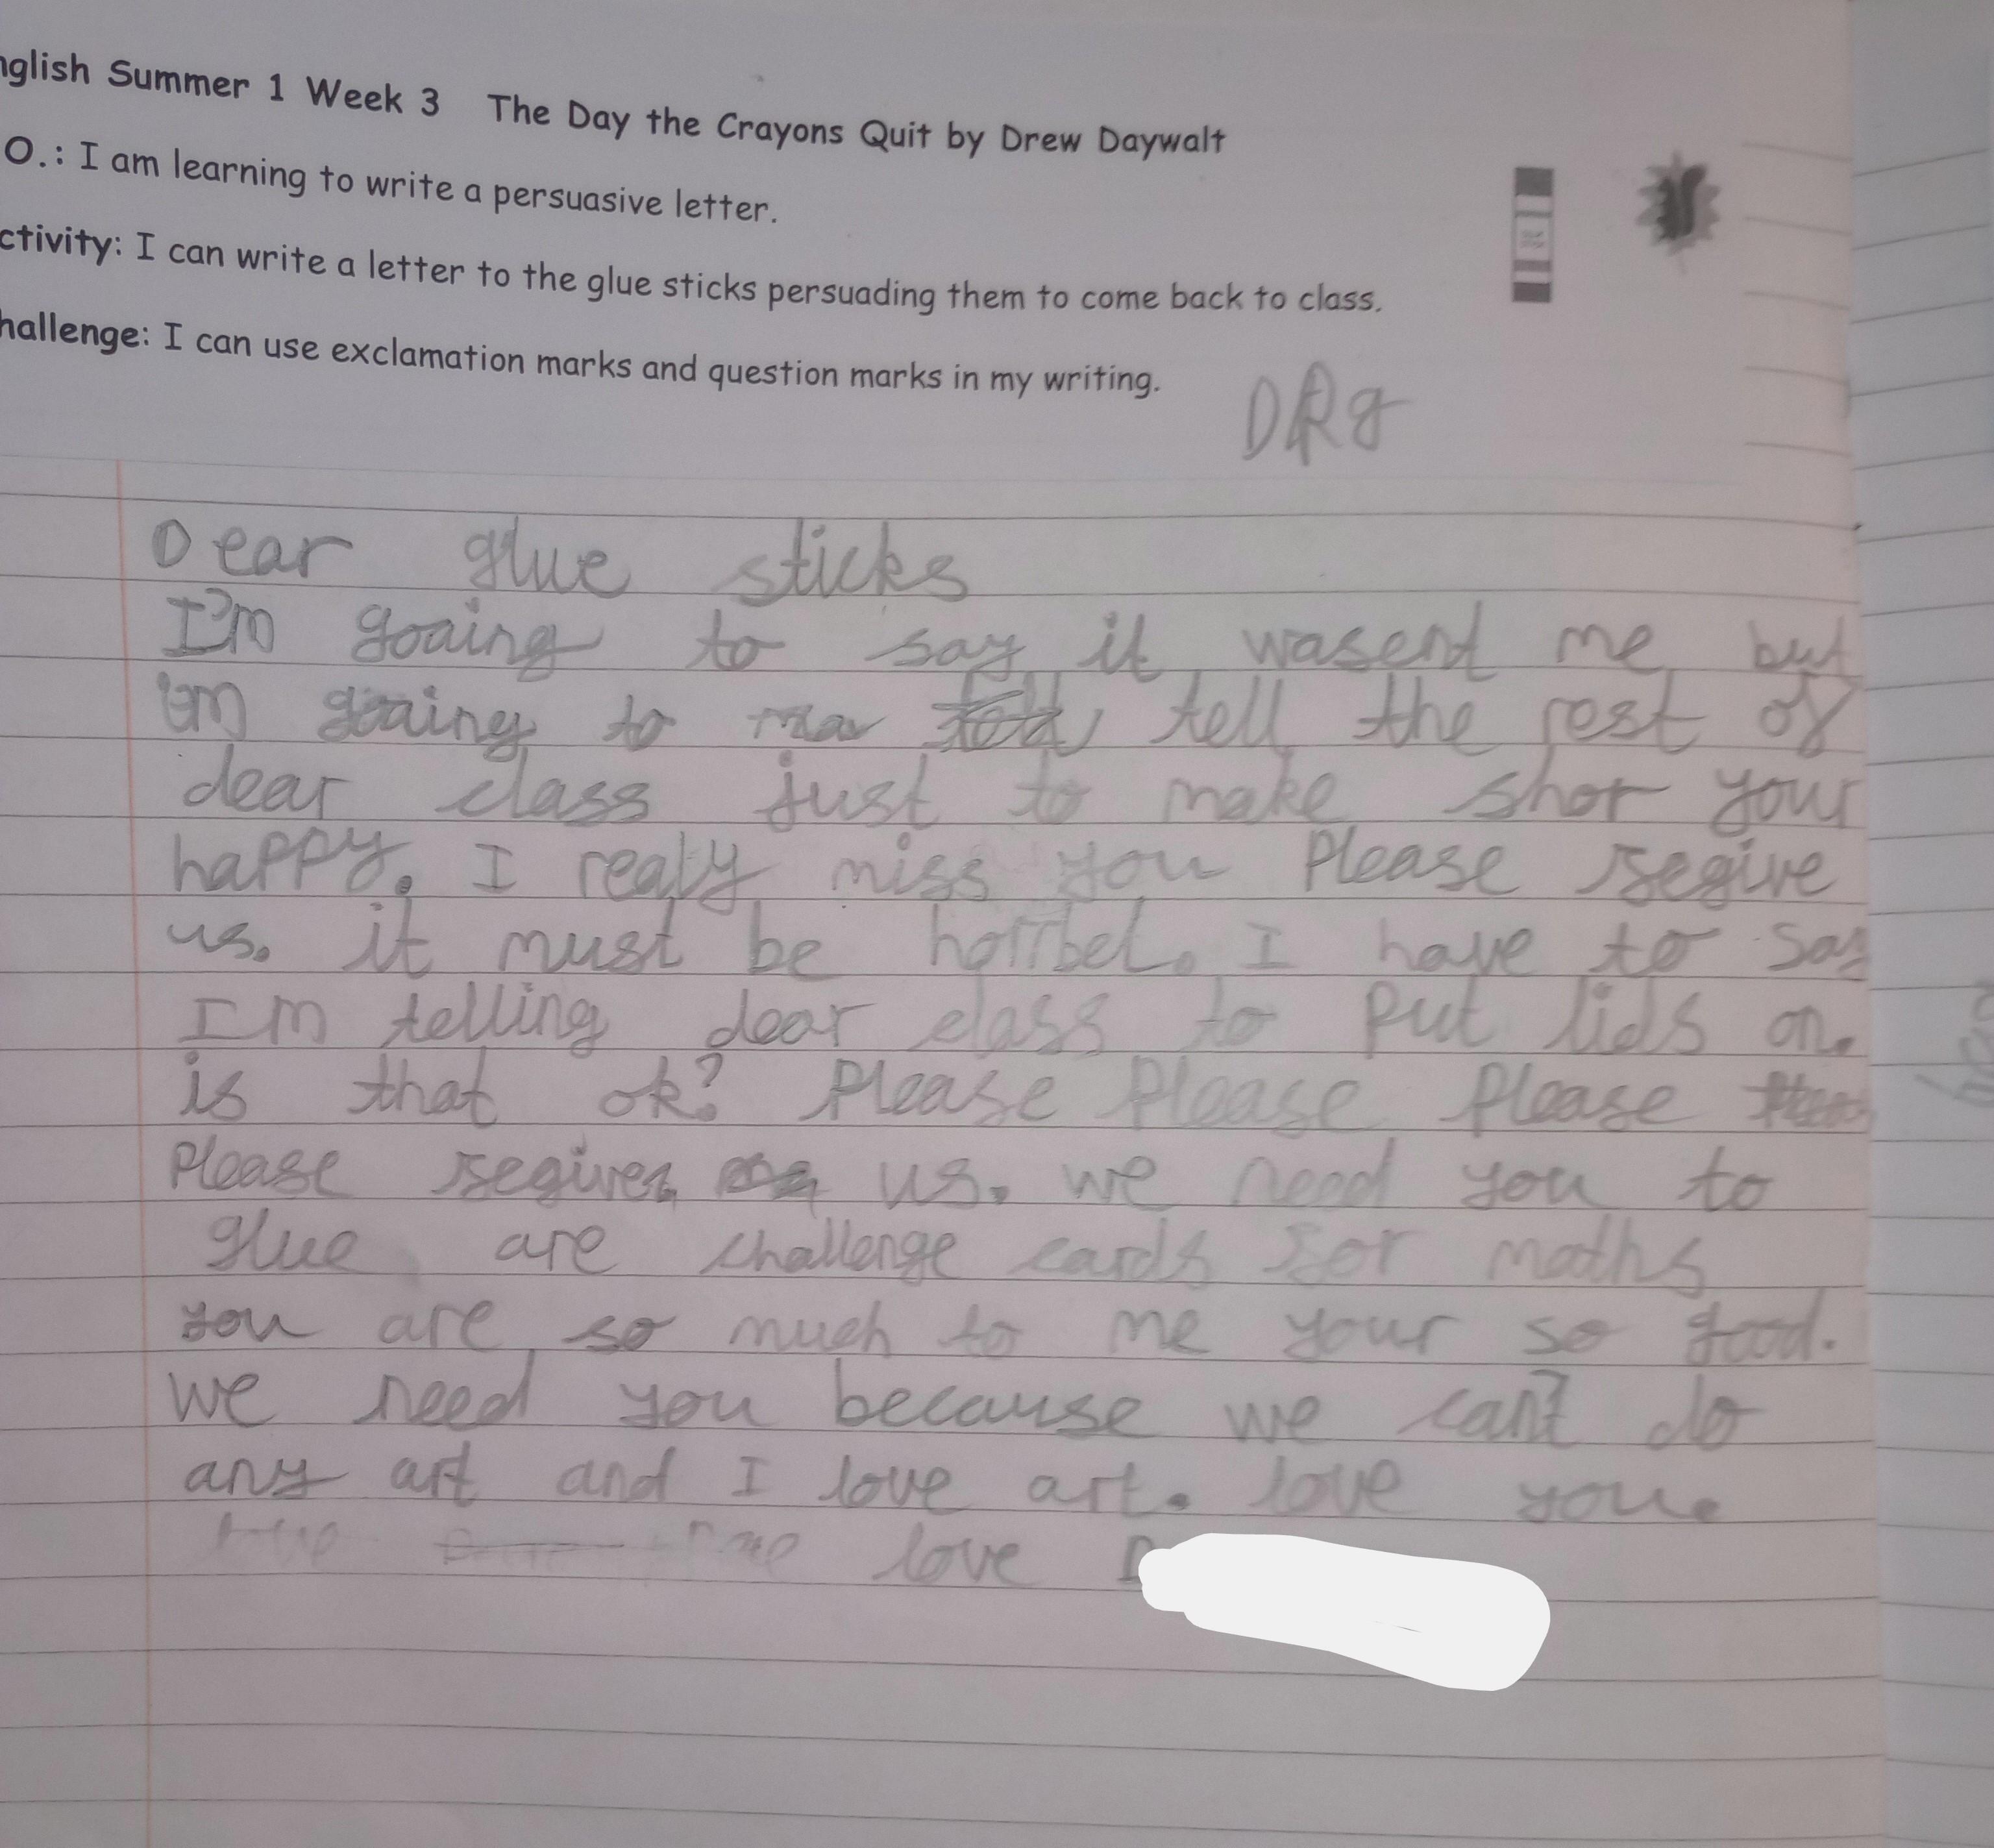 nglish Summer 1 Week 3 The Day the Crayons Quit by Drew Daywalt
O.: I am learning to write a persuasive letter.
ctivity: I can write a letter to the glue sticks persuading them to come back to class.
hallenge: I can use exclamation marks and question marks in my writing.
DRg
Dear glue sticks
I'm goaing to say it wasent me but
i'm goaing to tell the rest of
dear class just to make shor your
happy. I realy miss you Please fegive
us. it must be horrbel. I have to say
I'm telling dear class to put lids on.
is that ok? Please Please Please
Please fegive us. we need you to
glue are challenge cards for maths
you are so much to me your so good.
we need you because we can't do
any art and I love art. love you.
love